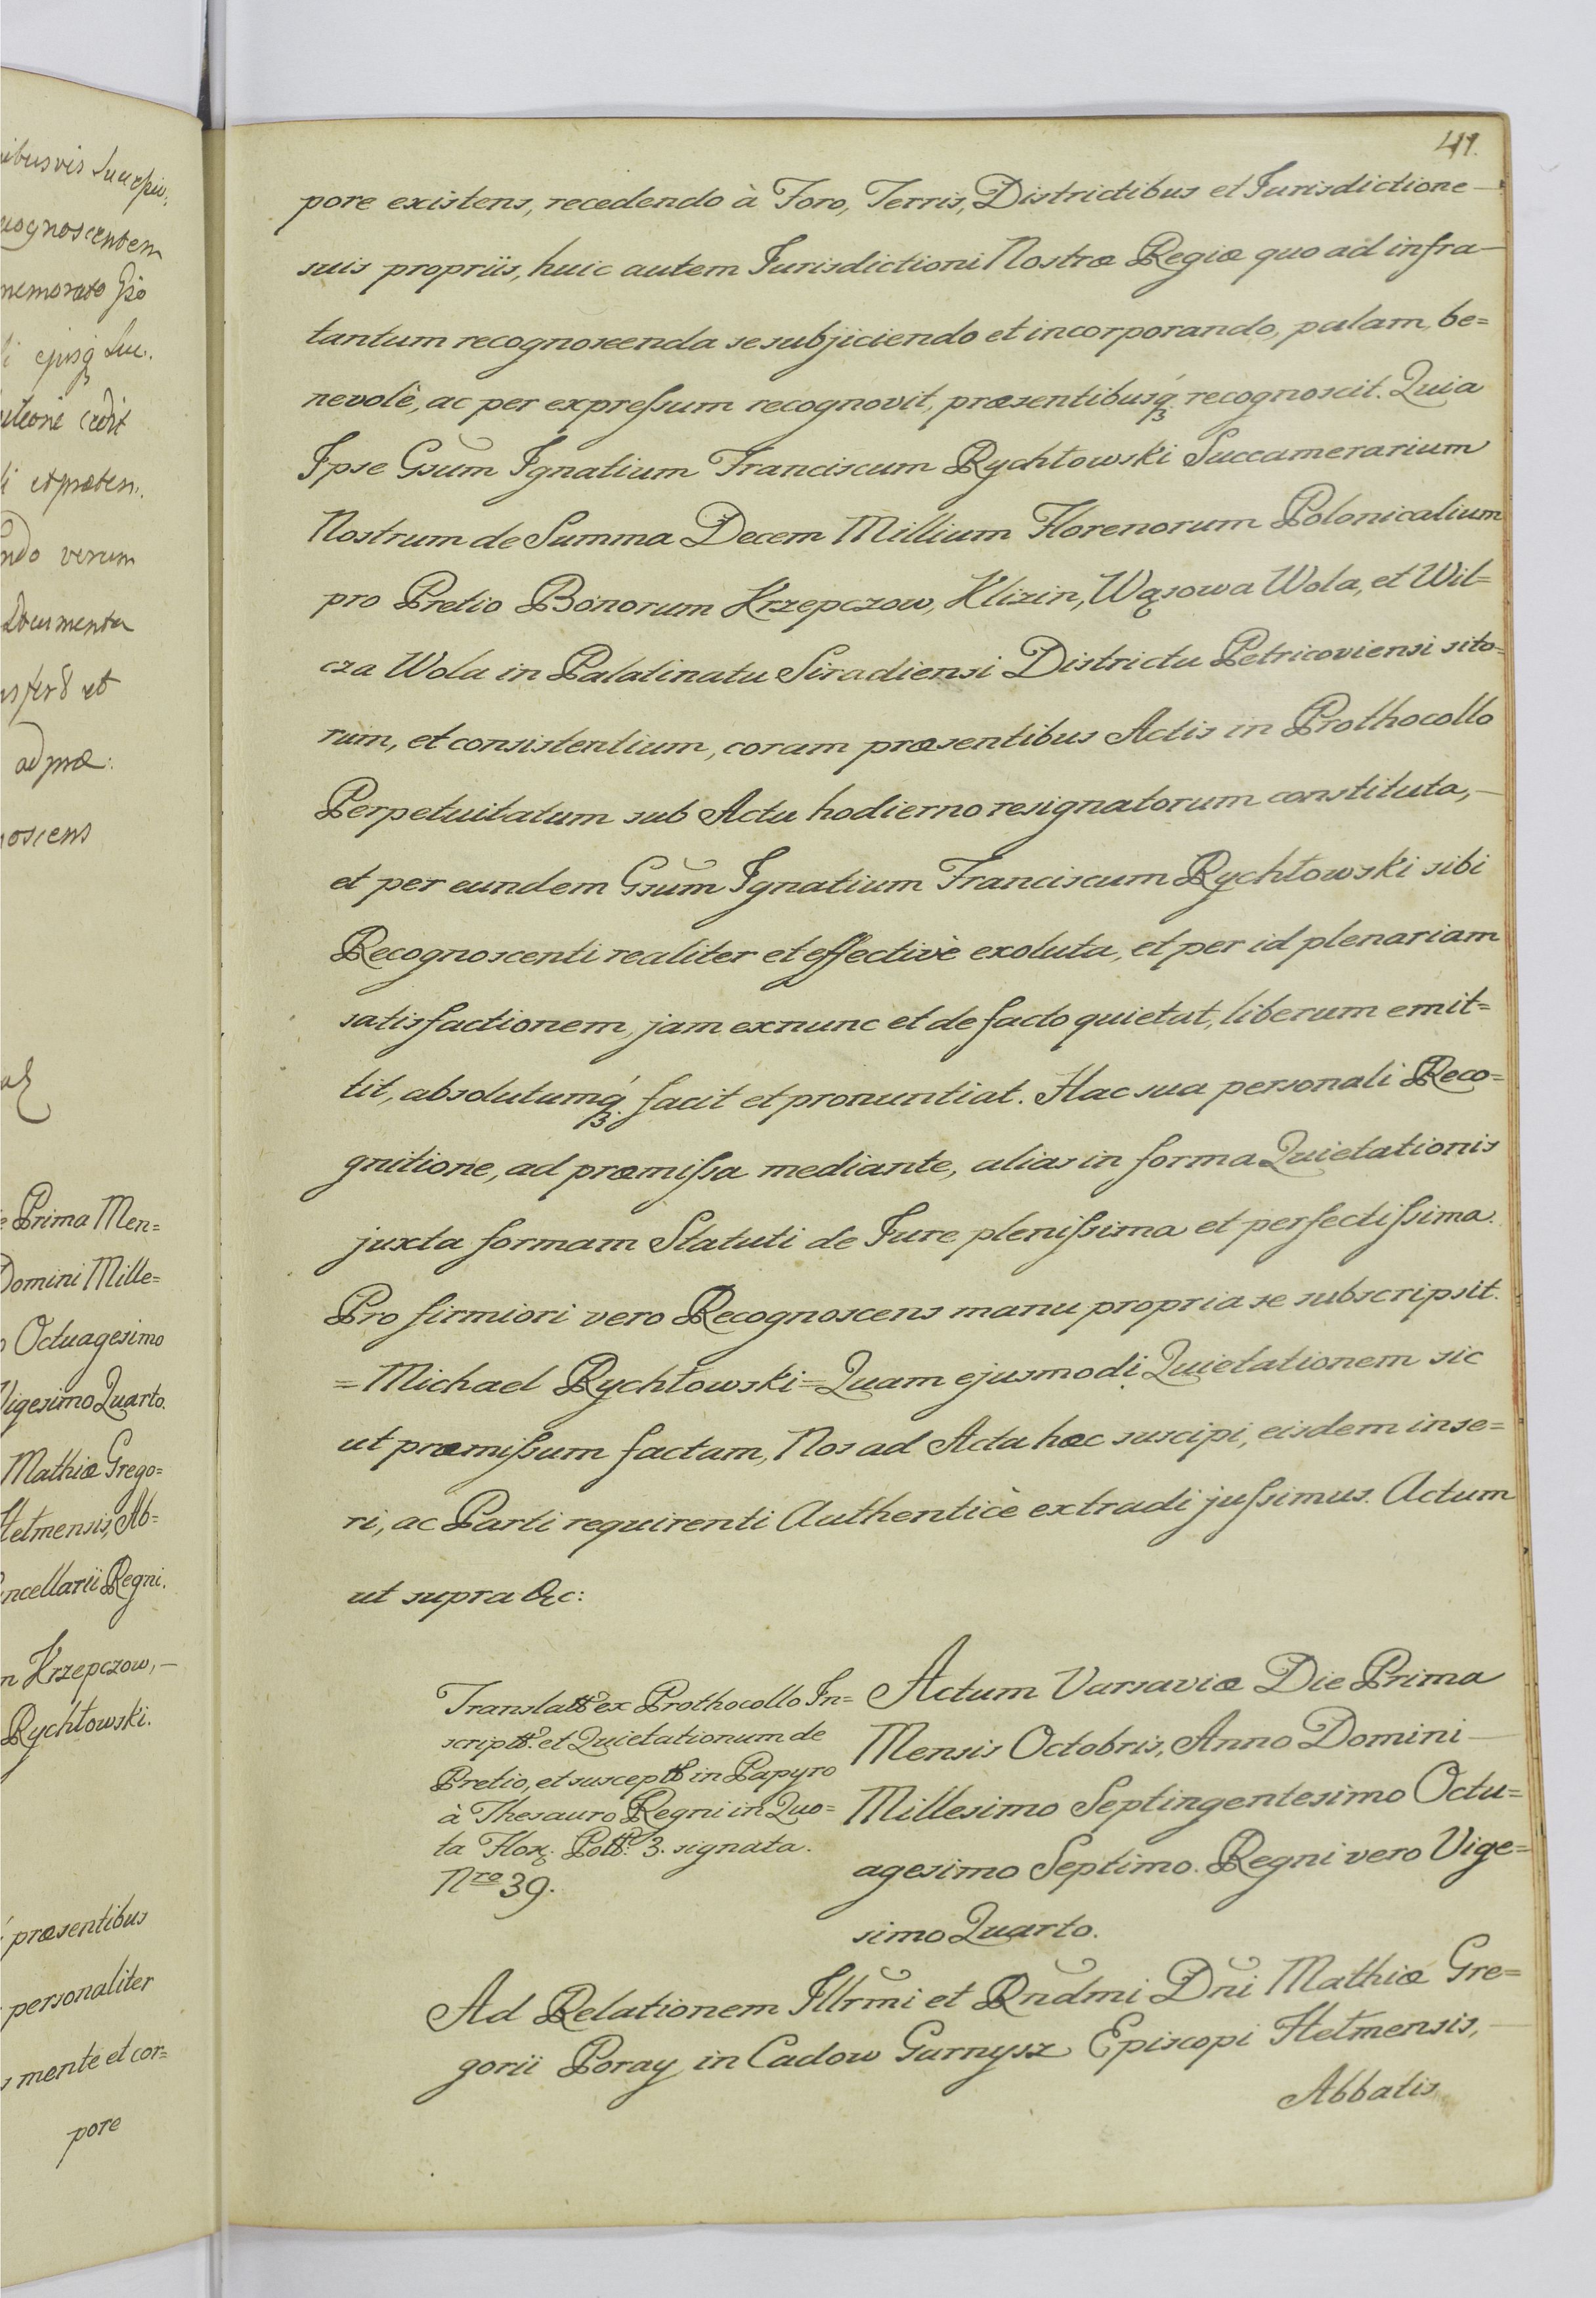 ibusvis
nemorato
verum
Documenta
ad præ:
e Prima Men=
Domini Mille=
Octuagesimo
Vigesimo Quarto.
Mathiæ Grego=
Hełmensis, Ab=
ncellarii Regni.
n Krzepczow, —
Rychłowski.
præsentibus
personaliter
mente et cor=
pore
41.
pore existens, recedendo à Foro, Terris, Districtibus et Jurisdictione —
suis propriis, huic autem Jurisdictioni Nostræ Regiæ quo ad infra —
tantum recognoscenda se subjiciendo et incorporando, palam, be=
nevolè, ac per expreſsum recognovit, præsentibusq́ꝫ recognoscit. Quia
Ipse Gsum Ignatium Franciscum Rychłowski Succamerarium
Nostrum de Summa Decem Millium Florenorum Polonicalium
pro Pretio Bonorum Krzepczow, Klizin, Wąsowa Wola, et Wil=
cza Wola in Palatinatu Siradiensi Districtu Petricoviensi sito=
rum, et consistentium, coram præsentibus Actis in Prothocollo
Perpetuitatum sub Actu hodierno resignatorum constituta, —
et per eundem Gsum Ignatium Franciscum Rychłowski sibi
Recognoscenti realiter et effectivè exoluta, et per id plenariam
satisfactionem, jam exnunc et de facto quietat, liberum emit=
tit, absolutumq́ꝫ facit et pronuntiat. Hac sua personali Reco=
gnitione, ad præmiſsa mediante, alias in forma Quietationis
juxta formam Statuti de Jure pleniſsima et perfectiſsima.
Pro firmiori vero Recognoscens manu propria se subscripsit.
= Michael Rychłowski = Quam ejusmodi Quietationem sic
ut præmiſsum factam, Nos ad Acta hæc suscipi, eisdem inse=
ri, ac Parti requirenti Authenticè extradi juſsimus. Actum
ut supra &c:
Translatt ex Prothocollo In=
scriptt. et Quietationum de
Pretio, et susceptt in Papyro
à Thesauro Regni in Quo=
ta Flor. Poll. 3. signata.
Nro 39.
Actum Varsaviæ Die Prima
Mensis Octobris, Anno Domini —
Millesimo Septingentesimo Octu=
agesimo Septimo. Regni vero Vige=
simo Quarto.
Ad Relationem Illrmi et Rndmi Dni Mathiæ Gre=
gorii Poray in Cadow Garnysz Episcopi Hełmensis, —
Abbatis